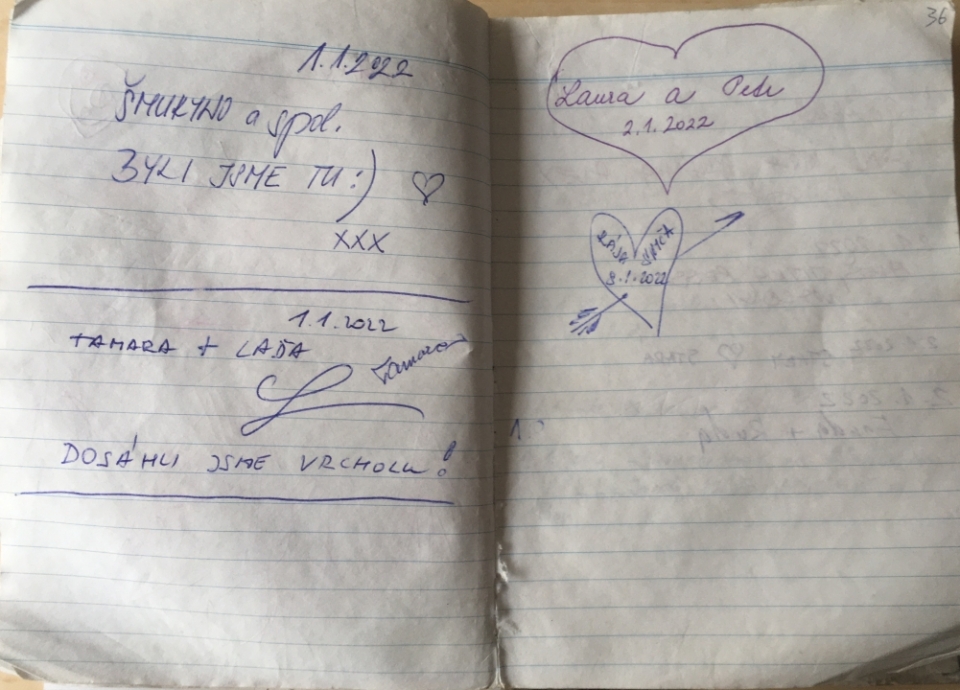 1.1.2022
a spol.
BYLI JSME TU :)
XXX
1.1.2022
TAMARA + LAĎA
Tamara
DOSÁHLI JSME VRCHOLU!
36
Laura a Petr
2.1.2022
LÁJA
9.1.2022